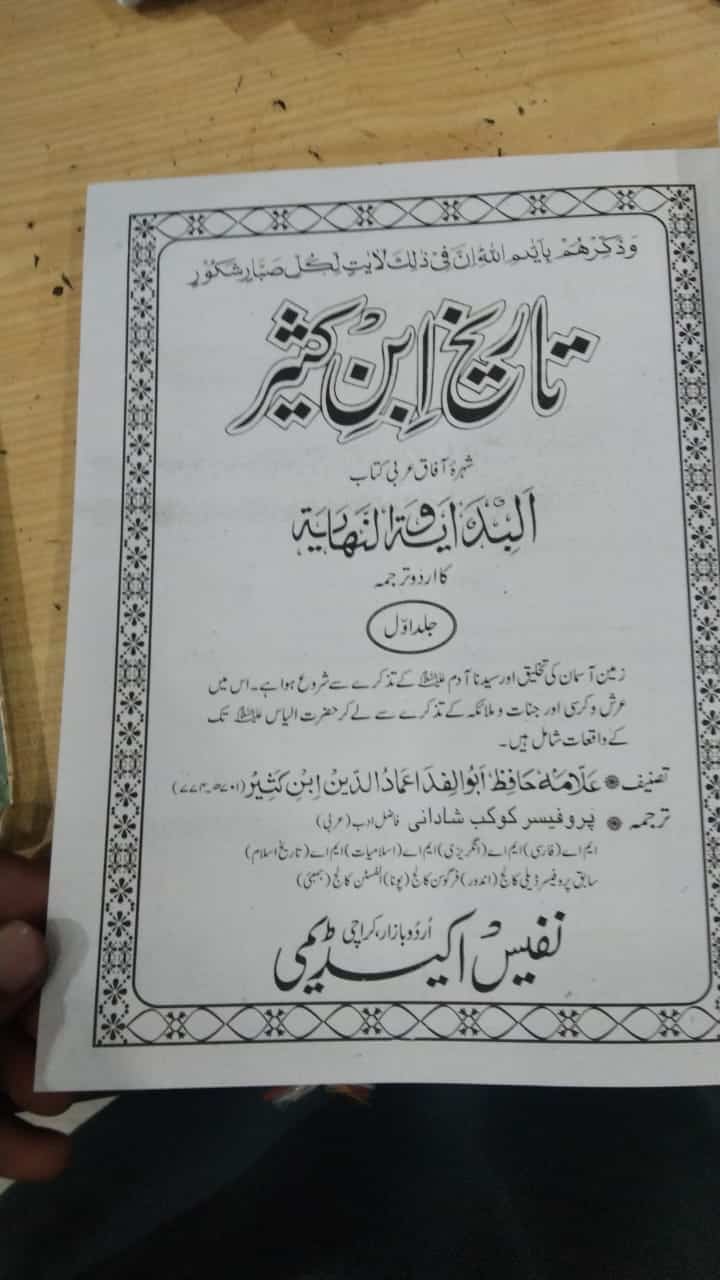 وَذَكِّرْهُمْ بِاَيّٰىمِ اللّٰهِ اِنَّ فِىْ ذٰلِكَ لَاٰيٰتٍ لِّكُلِّ صَبَّارٍ شَكُوْرٍ
تاریخ اِبنِ کثیر
شہرۂ آفاق عربی کتاب
اَلبِدَایَۃ وَالنِّہَایَۃ
کا اردو ترجمہ
جلد اوّل
زمین آسمان کی تخلیق اور سیدنا آدم علیہ السلام کے تذکرے سے شروع ہوا ہے۔ اس میں
عرش وکرسی اور جنات وملائکہ کے تذکرے سے لے کر حضرت الیاس علیہ السلام تک
کے واقعات شامل ہیں۔
تصنیف ٭ علّامہ حافظ ابوالفدا عمادالدین ابن کثیر (۷۰۱ھ۔۷۷۴)
ترجمہ ٭ پروفیسر کوکب شادانی فاضل ادب (عربی)
ایم اے (فارسی) ایم اے (انگریزی) ایم اے (اسلامیات) ایم اے (تاریخ اسلام)
سابق پروفیسر ڈیلی کالج (اندور) فرگوسن کالج (پونا) الفنسٹن کالج (بمبئی)
اُردو بازار، کراچی
نفیس اکیڈیمی